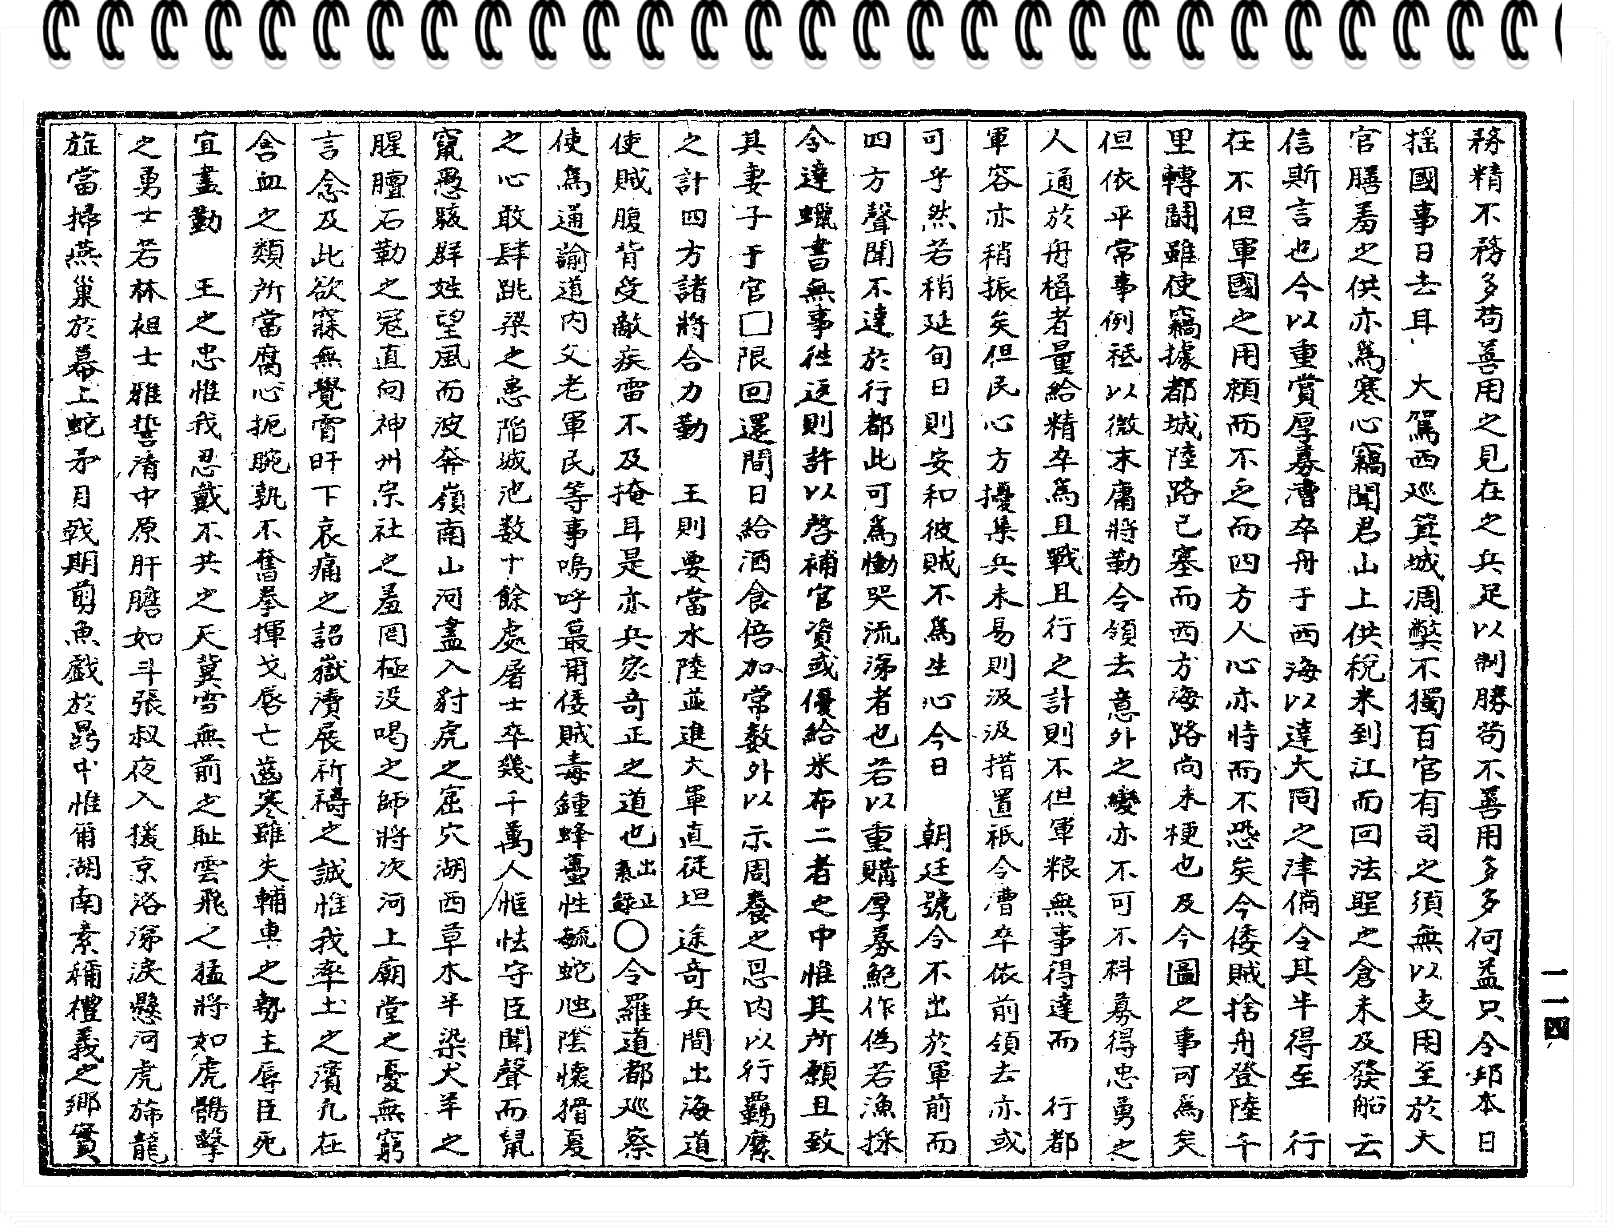 務精不務多苟善用之見在之兵足以制勝苟不善用多多何益只今邦本日
搖國事日去耳 大駕西巡箕城凋弊不獨百官有司之須無以支用至於大
官膳羞之供亦爲寒心竊聞君山上供稅米到江而回法聖之倉未及發船云
信斯言也今以重賞厚募漕卒舟于西海以達大同之津倘令其半得至 行
在不但軍國之用賴而不乏而四方人心亦恃而不恐矣今倭賊捨舟登陸千
里轉鬪雖使竊據都城陸路已塞而西方海路尚未梗也及今圖之事可爲矣
但依平常事例祗以微末庸將勒令領去意外之變亦不可不科募得忠勇之
人通於舟楫者量給精卒爲且戰且行之計則不但軍粮無事得達而 行都
軍容亦稍振矣但民心方擾集兵未易則汲汲措置祗令漕卒依前領去亦或
可乎然若稍延旬日則安和彼賊不爲生心今日 朝廷號令不出於軍前而
四方聲聞不達於行都此可爲慟哭流涕者也若以重購厚募鮑作偽若漁採
令達蠟書無事徃返則許以啓補官資或優給米布二者之中惟其所願且致
其妻子于官□限回還間日給酒食倍加常數外以示周養之恩內以行羈縻
之計四方諸將合力勤 王則要當水陸並進大軍直從坦途奇兵間出海道
使賊腹背受敵疾雷不及掩耳是亦兵家奇正之道也出正義錄○令羅道都巡察
使爲通諭道內父老軍民等事嗚呼蕞爾倭賊毒鍾蜂蠆性毓蛇虺陰懷猾夏
之心敢肆跳梁之患陷城池数十餘處屠士卒幾千萬人恇怯守臣聞聲而鼠
竄愚駭群姓望風而波奔嶺南山河盡入豺虎之窟穴湖西草木半染犬羊之
腥膻石勒之冦直向神州宗社之羞罔極没喝之師將次河上廟堂之憂無窮
言念及此欲寐無覺霄旰下哀痛之詔嶽瀆展祈禱之誠惟我率土之濱凡在
含血之類所當腐心扼腕孰不奮拳揮戈唇亡齒寒雖失輔車之勢主辱臣死
宜盡勤 王之忠惟我忍戴不共之天冀雪無前之耻雲飛之猛將如虎鶻擊
之勇士若林袒士雅誓清中原肝膽如斗張叔夜入援京洛涕淚懸河虎旆龍
旌當掃燕巢於幕上蛇矛月戟期剪魚戲於鼎中惟爾湖南素稱禮義之鄉實
一一四